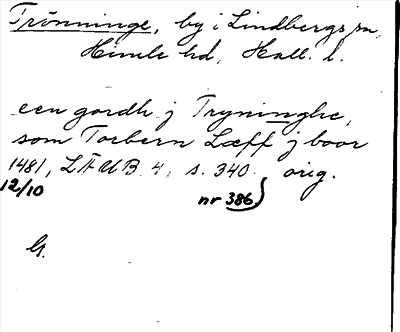 Trönninge, by i Lindbergs sn,
Himle hd, Hall. l.
een gordh j Tryninghe,
som Torbern Læff j boor
1481, LÄUB 4, s. 340. orig.
12/10 nr 386)
G.